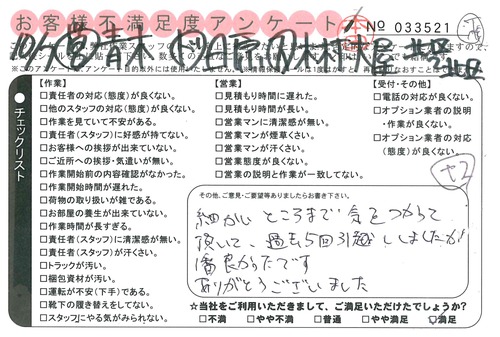 お客様不満足度アンケート
No 033521
チェックリスト
【作業】
□責任者の対応(態度)が良くない。
□他のスタッフの対応(態度)が良くない。
□作業を見ていて不安がある。
□責任者(スタッフ)に好感が持てない。
□お客様への挨拶が出来ていない。
□ご近所への挨拶・気遣いが無い。
□作業開始前の内容確認がなかった。
□作業開始時間が遅れた。
□荷物の取り扱いが雑である。
□お部屋の養生が出来ていない。
□作業時間が長すぎる。
□責任者(スタッフ)に清潔感が無い。
□責任者(スタッフ)が汗くさい。
□トラックが汚い。
□梱包資材が汚い。
□運転が不安(下手)である。
□靴下の履き替えをしてない。
□スタッフにやる気がみられない。
【営業】
□見積もり時間に遅れた。
□見積もり時間が長い。
□営業マンに清潔感が無い。
□営業マンが煙草くさい。
□営業マンが汗くさい。
□営業態度が良くない。
□営業の説明と作業が一致してない。
【受付・その他】
□電話の対応が良くない。
□オプション業者の説明
・作業が良くない。
□オプション業者の対応
(態度)が良くない。
その他、ご意見・ご要望等ありましたらお書き下さい。
細かい ところまで 気をつかって
頂いて、過去5回引越ししましたが
1番良かったです
ありがとうございました
☆当社をご利用いただきまして、ご満足いただけたでしょうか?
□不満 □やや不満 □普通 □やや満足 □満足